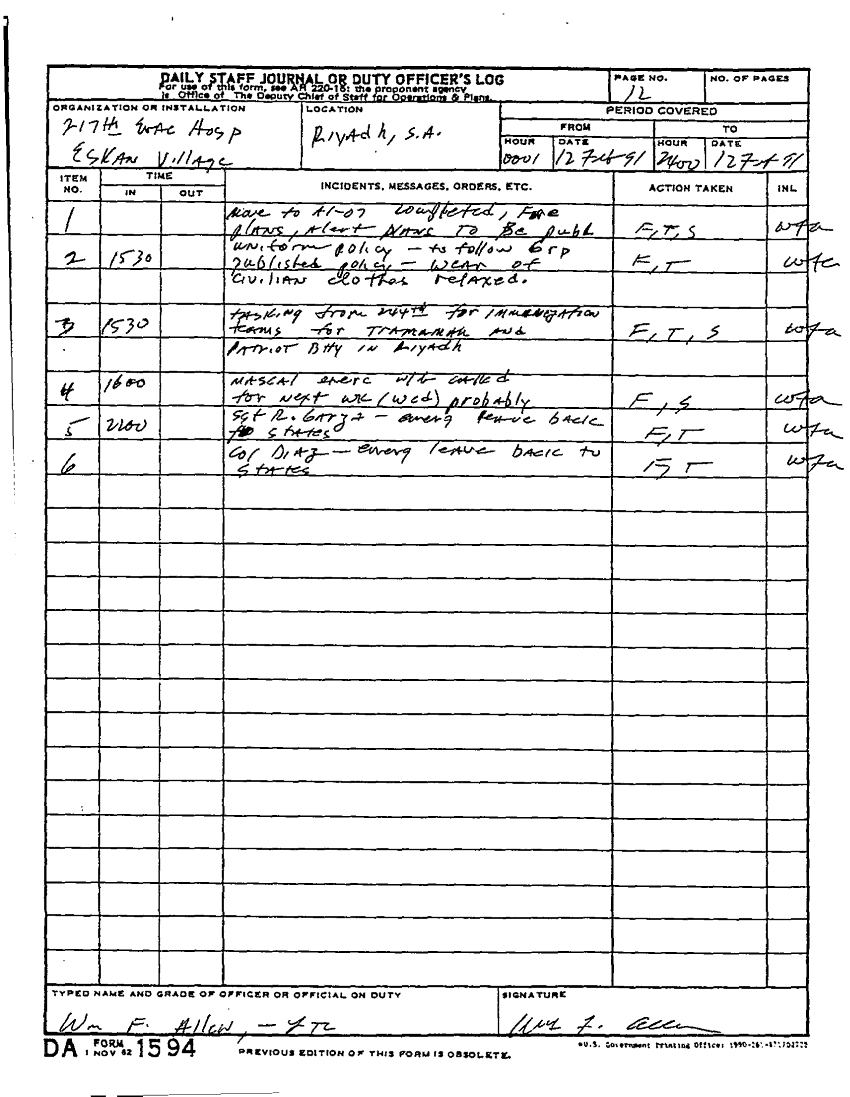 DAILY STAFF JOURNAL OR DUTY OFFICER'S LOG
For use of this form, see AR 220-15; the proponent agency
is Office of The Deputy Chief of Staff for Operations & Plans.
PAGE NO.
12
NO. OF PAGES
ORGANIZATION OR INSTALLATION
217th Evac Hosp
ESKAN Village
LOCATION
Riyadh, S.A.
PERIOD COVERED
FROM
TO
HOUR
DATE
HOUR
DATE
0001
12 Feb 91
2400
12 Feb 91
ITEM NO.
TIME
IN
OUT
INCIDENTS, MESSAGES, ORDERS, ETC.
ACTION TAKEN
INL
1 Move to A1-07 completed, Fire
plans, Alert plans To Be publ F, T, S wfa
2 1530 uniform policy - to follow Grp
published policy - wear of F, T wfa
civilian clothes relaxed.
3 1530 tasking from 244th for immunization
teams for and F, T, S wfa
PATRIOT Btry in Riyadh
4 1600 MASCAL exerc w/b called
for next wk (wed) probably F, S wfa
5 2200 Sgt R. Garza - emerg leave back
to states F, T wfa
6 Col Diaz - emerg leave back to
states F, T wfa
TYPED NAME AND GRADE OF OFFICER OR OFFICIAL ON DUTY
Wm F. Allen, - LTC
SIGNATURE
Wm F. Allen
DA FORM 1 NOV 62 1594
PREVIOUS EDITION OF THIS FORM IS OBSOLETE.
U.S. Government Printing Office: